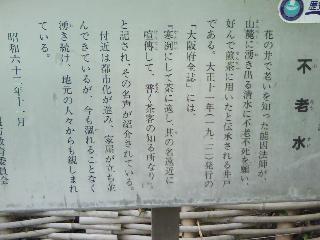 不老水
花の井で老いを知った能因法師が、
山麓に湧き出る清水に不老不死を願い、
好んで煎茶に用いたと伝承される井戸
である。大正十一年(一九二二)発行の
「大阪府全誌」には
『寒洌にして茶に適し、其の名遠近に
喧傳して、普く茶客の知る所なり』
と記され、その名声が紹介されている。
付近は都市化が進み、家屋が立ち並
んできているが、今も涸れることなく
湧き続け、地元の人々からも親しまれ
ている。
昭和六十二年十一月
教育委員会